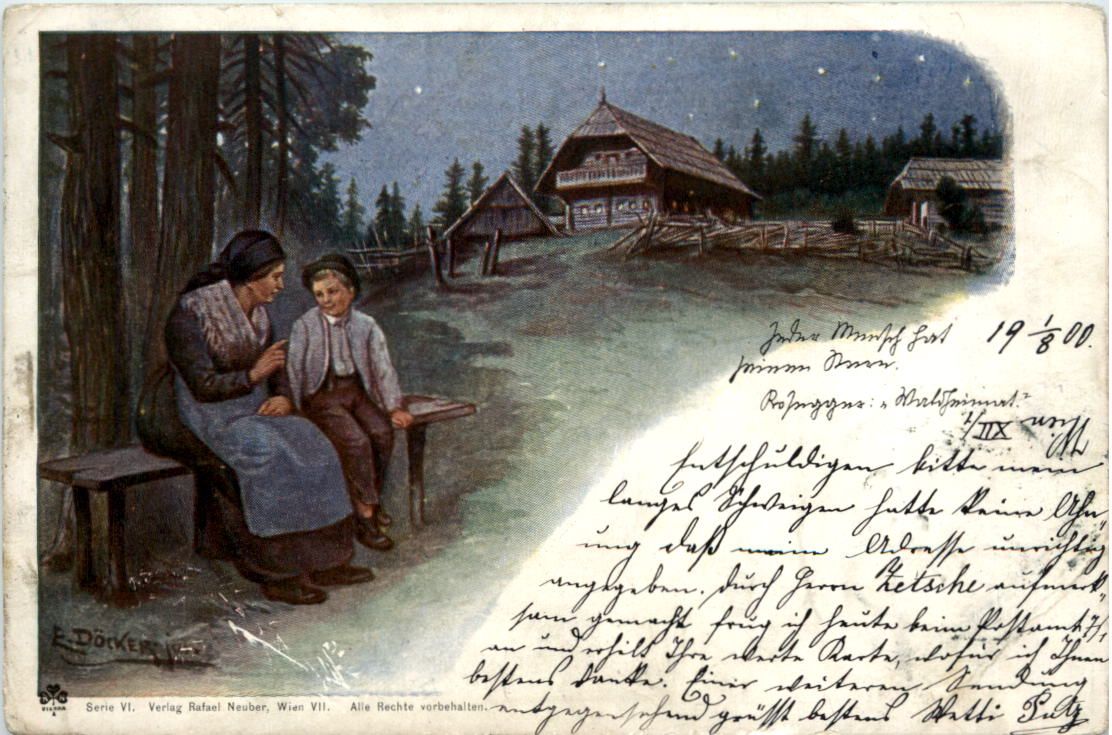 Jeder Mensch hat
seinen Stern.
Rosegger: „Waldheimat."
19 1/8 00.
Wien 1/XII
Entschuldigen bitte mein
langes Schweigen hatte keine Ahn-
ung daß meine Adresse unrichtig
angegeben. durch Herrn Zetsche aufmerk-
sam gemacht frug ich heute beim Postamt
an und erhielt Ihre werte Karte, wofür ich Ihnen
bestens danke. Einer weiteren Sendung
entgegensehend grüsst bestens Wetti
E. DÖCKER
VIENNA
Serie VI. Verlag Rafael Neuber, Wien VII. Alle Rechte vorbehalten.